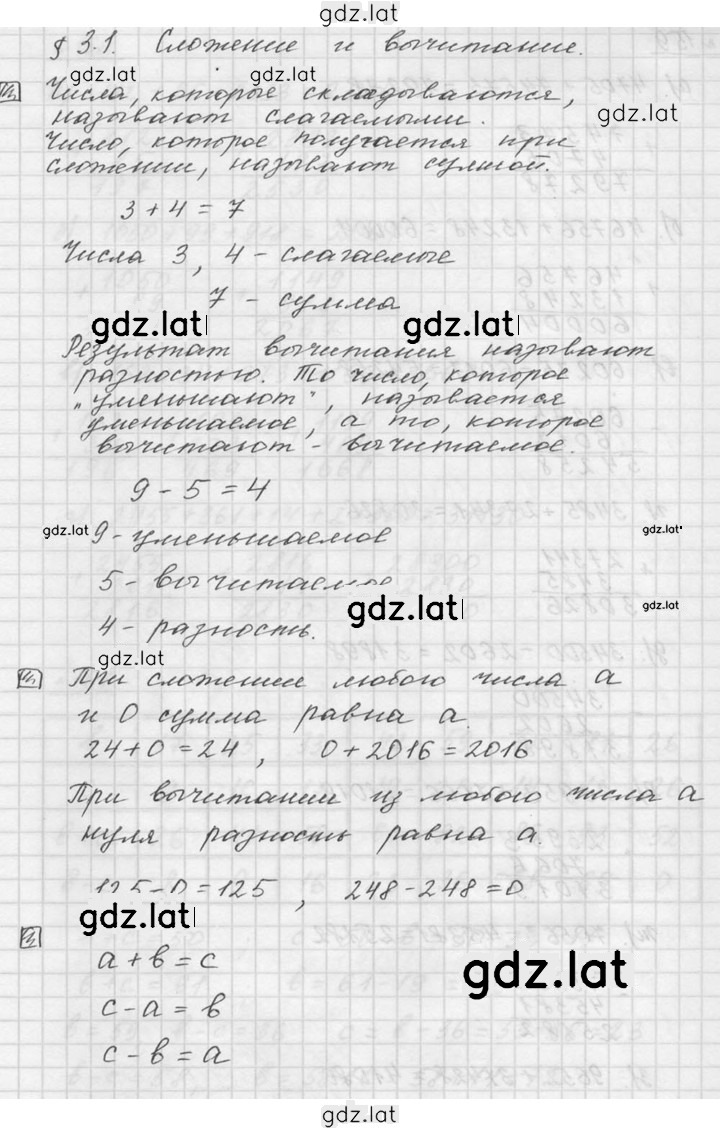 gdz.lat
§ 3.1. Сложение и вычитание.
gdz.lat
Числа, которые складываются,
gdz.lat
называют слагаемыми.
Число, которое получается при
сложении, называют суммой.
3 + 4 = 7
Числа 3, 4 - слагаемые
7 - сумма
gdz.lat gdz.lat
Результат вычитания называют
разностью. То число, которое
„уменьшают", называется
уменьшаемое, а то, которое
вычитают - вычитаемое.
9 - 5 = 4
gdz.lat gdz.lat
9 - уменьшаемое
5 - вычитаемое
gdz.lat gdz.lat
4 - разность.
gdz.lat
При сложении любого числа а
и 0 сумма равна а.
24 + 0 = 24, 0 + 2016 = 2016
При вычитании из любого числа а
нуля разность равна а.
125 - 0 = 125, 248 - 248 = 0
gdz.lat
a + в = с
gdz.lat
с - а = в
с - в = а
gdz.lat